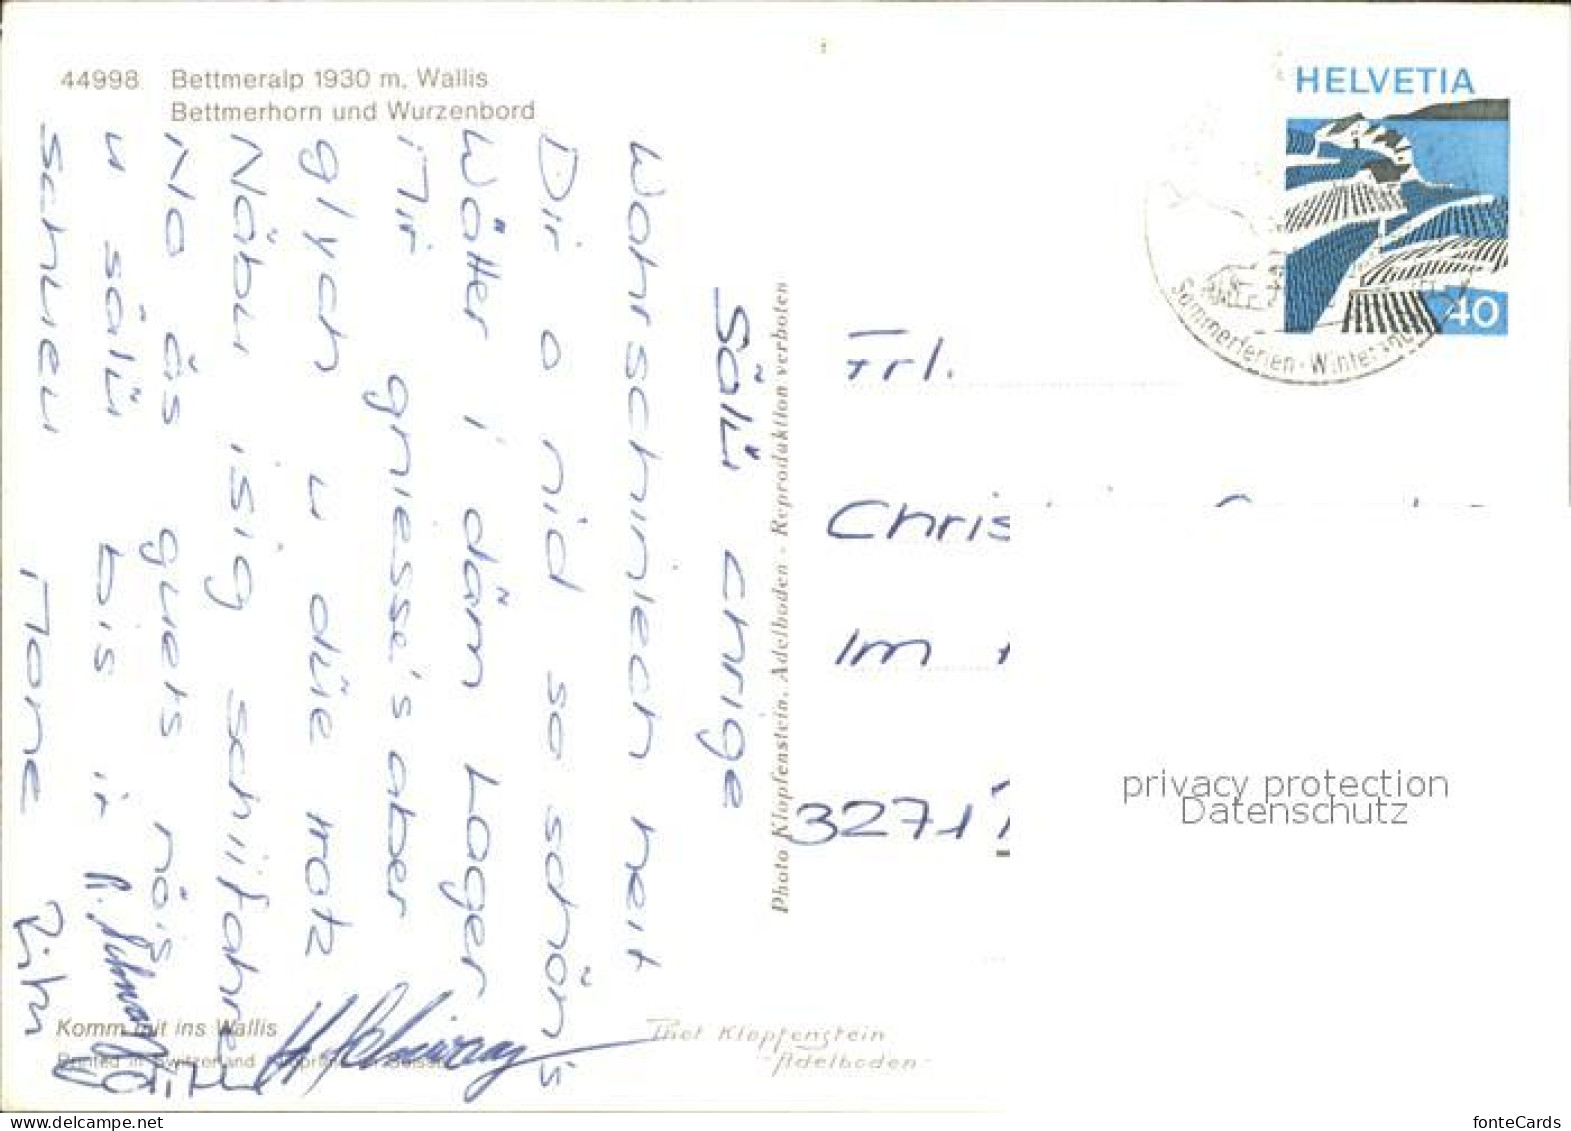 44998 Bettmeralp 1930 m, Wallis
Bettmerhorn und Wurzenbord
HELVETIA
40
Sommerferien - Winter
Sälü Chrige
Wohrschinlech heit
Dir o nid so schön's
Wätter i däm Loger
Mir gniesse's aber
glych u düe trotz
Näbu isig schiifahre
No äs guets nöis
u sälü bis ir
schueu
Photo Klopfenstein, Adelboden - Reproduktion verboten
Frl.
Im
3271
Komm mit ins Wallis
Printed in Switzerland
Phot Klopfenstein
-Adelboden-
privacy protection
Datenschutz
fonteCards